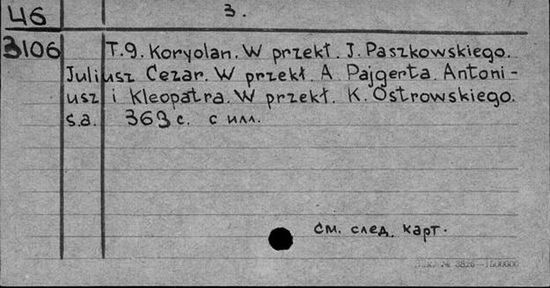 46
3.
3106
T.9. Koryolan. W przekł. J. Paszkowskiego.
Juliusz Cezar. W przekł. A. Pajgerta. Antoni-
usz i Kleopatra. W przekł. K. Ostrowskiego.
s.a. 363 с. с илл.
См. след. карт.